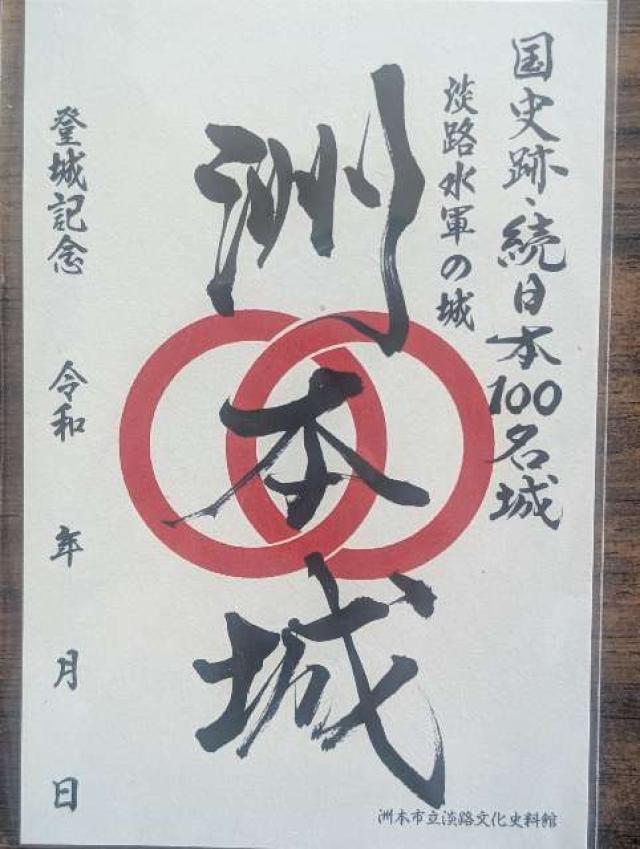 国史跡・続日本100名城
淡路水軍の城
洲本城
登城記念 令和 年 月 日
洲本市立淡路文化史料館